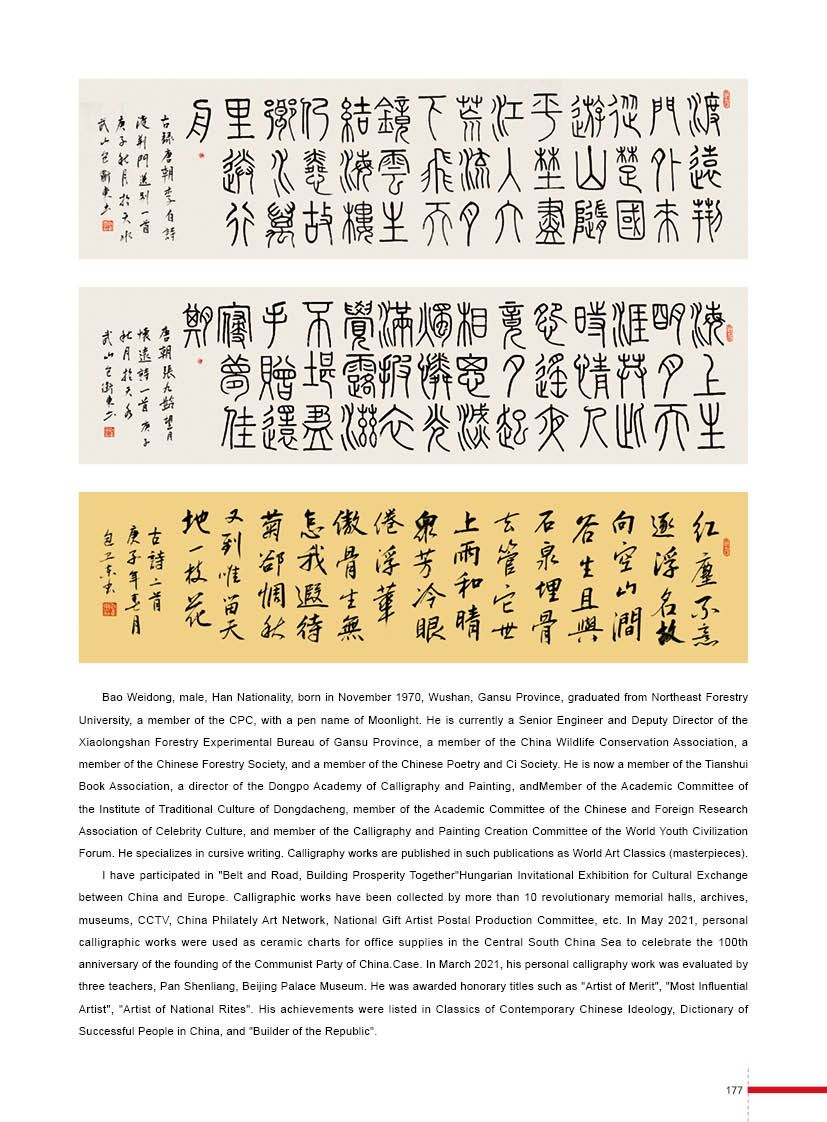 渡遠荆
門外来
從楚國
遊山隨
平埜盡
江入大
荒流月
下飛天
鏡雲生
結海樓
仍故
鄉水萬
里送行
舟
古録唐朝李白詩
渡荆門送别一首
庚子秋月於天水
武山包衛東书
海上生
明月天
涯共此
時情人
怨遥夜
竟夕起
相思滅
燭憐光
滿披衣
覺露滋
不堪盈
手贈還
寢夢佳
期
唐朝張九齡望月
懷遠詩一首庚子
秋月於天水
武山包衛東书
红塵不意
逐浮名故
向空山澗
谷生且與
石泉埋骨
去管它世
上雨和晴
衆芳冷眼
倦浮華
傲骨生無
怎我遐待
菊郤惆秋
又到惟留天
地一枝花
古詩二首
庚子年春月
包卫东书
Bao Weidong, male, Han Nationality, born in November 1970, Wushan, Gansu Province, graduated from Northeast Forestry
University, a member of the CPC, with a pen name of Moonlight. He is currently a Senior Engineer and Deputy Director of the
Xiaolongshan Forestry Experimental Bureau of Gansu Province, a member of the China Wildlife Conservation Association, a
member of the Chinese Forestry Society, and a member of the Chinese Poetry and Ci Society. He is now a member of the Tianshui
Book Association, a director of the Dongpo Academy of Calligraphy and Painting, andMember of the Academic Committee of
the Institute of Traditional Culture of Dongdacheng, member of the Academic Committee of the Chinese and Foreign Research
Association of Celebrity Culture, and member of the Calligraphy and Painting Creation Committee of the World Youth Civilization
Forum. He specializes in cursive writing. Calligraphy works are published in such publications as World Art Classics (masterpieces).
I have participated in "Belt and Road, Building Prosperity Together"Hungarian Invitational Exhibition for Cultural Exchange
between China and Europe. Calligraphic works have been collected by more than 10 revolutionary memorial halls, archives,
museums, CCTV, China Philately Art Network, National Gift Artist Postal Production Committee, etc. In May 2021, personal
calligraphic works were used as ceramic charts for office supplies in the Central South China Sea to celebrate the 100th
anniversary of the founding of the Communist Party of China.Case. In March 2021, his personal calligraphy work was evaluated by
three teachers, Pan Shenliang, Beijing Palace Museum. He was awarded honorary titles such as "Artist of Merit", "Most Influential
Artist", "Artist of National Rites". His achievements were listed in Classics of Contemporary Chinese Ideology, Dictionary of
Successful People in China, and "Builder of the Republic".
177